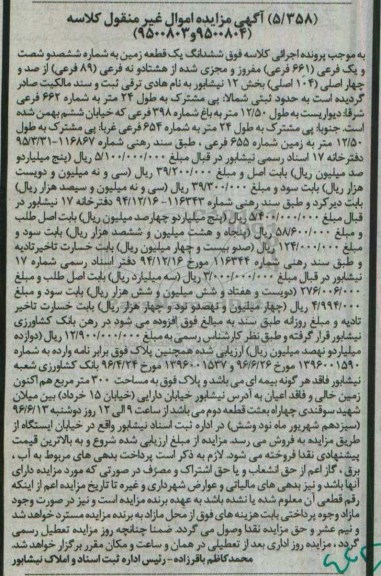 (۵/۳۵۸) آگهی مزایده اموال غیر منقول کلاسه
(۹۵۰۰۸۰۴و۹۵۰۰۸۰۳)
به موجب پرونده اجرائی کلاسه فوق ششدانگ یک قطعه زمین به شماره ششصدو شصت
و یک فرعی (۶۶۱ فرعی) مفروز و مجزی شده از هشتادو نه فرعی (۸۹ فرعی) از صد و
چهار اصلی (۱۰۴ اصلی) بخش ۱۲ نیشابور به نام هادی ترقی ثبت و سند مالکیت صادر
گردیده است به حدود ثبتی شمالا: پی مشترک به طول ۲۴ متر به شماره ۶۶۲ فرعی
شرقا: دیواریست به طول ۱۲/۵۰ متر به باغ شماره ۳۹۸ فرعی که خیابان ششم بهمن شده
است. جنوبا: پی مشترک به طول ۲۴ متر به شماره ۶۵۴ فرعی غربا: پی مشترک به طول
۱۲/۵۰ متر به زمین شماره ۶۵۵ فرعی ، طبق سند رهنی شماره ۱۱۶۸۶۷-۹۵/۳/۳۱
دفترخانه ۱۷ اسناد رسمی نیشابور در قبال مبلغ ۵/۱۰۰/۰۰۰/۰۰۰ ریال (پنج میلیاردو
صد میلیون ریال) بابت اصل و مبلغ ۳۹/۲۰۰/۰۰۰ ریال (سی و نه میلیون و دویست
هزار ریال) بابت سود و مبلغ ۳۹/۳۰۰/۰۰۰ ریال (سی و نه میلیون و سیصد هزار ریال)
بابت دیرکرد و طبق سند رهنی شماره ۱۱۶۳۴۳-۹۴/۱۲/۱۶ دفترخانه ۱۷ نیشابور در
قبال مبلغ ۵/۴۰۰/۰۰۰/۰۰۰ ریال (پنج میلیاردو چهارصد میلیون ریال) بابت اصل طلب
و مبلغ ۵۸/۶۰۰/۰۰۰ ریال (پنجاه و هشت میلیون و ششصد هزار ریال) بابت سود و
مبلغ ۱۲۴/۰۰۰/۰۰۰ ریال (صدو بیست و چهار میلیون ریال) بابت خسارت تاخیر تادیه
و طبق سند رهنی شماره ۱۱۶۳۴۴ مورخ ۹۴/۱۲/۱۶ دفتر اسناد رسمی شماره ۱۷
نیشابور در قبال مبلغ ۳/۰۰۰/۰۰۰/۰۰۰ ریال (سه میلیارد ریال) بابت اصل طلب و مبلغ
۲۷۶/۰۰۶/۰۰۰ (دویست و هفتاد و شش میلیون و شش هزار ریال) بابت سود و مبلغ
۴/۹۹۴/۰۰۰ ریال (چهار میلیون و نهصدو نود و چهار هزار ریال) بابت خسارت تاخیر
تادیه و مبلغ روزانه طبق سند به مبالغ فوق افزوده می شود در رهن بانک کشاورزی
نیشابور قرار گرفته و طبق نظر کارشناس رسمی به مبلغ ۱۲/۹۰۰/۰۰۰/۰۰۰ ریال (دوازده
میلیاردو نهصد میلیون ریال) ارزیابی شده همچنین پلاک فوق برابر نامه وارده به شماره
۱۳۹۶۰۰۱۵۹۰ مورخ ۹۶/۶/۲۶ و ۱۳۹۶۰۰۱۵۳۷ مورخ ۹۶/۴/۲۴ بانک کشاورزی شعبه
نیشابور فاقد هر گونه بیمه ای می باشد و پلاک فوق به مساحت ۳۰۰ متر مربع هم اکنون
زمین خالی و فاقد اعیان به آدرس نیشابور خیابان دارایی (خیابان ۱۵ خرداد) بین میلان
شهید سوقندی چهارراه بعثت قطعه دوم می باشد از ساعت ۹ الی ۱۲ روز دوشنبه ۹۶/۶/۱۳
(سیزدهم شهریور ماه نود وشش) در اداره ثبت اسناد نیشابور واقع در خیابان ایستگاه از
طریق مزایده به فروش می رسد. مزایده از مبلغ ارزیابی شده شروع و به بالاترین قیمت
پیشنهادی نقدا فروخته می شود. لازم به ذکر است پرداخت بدهی های مربوط به آب ،
برق ، گاز اعم از حق انشعاب و یا حق اشتراک و مصرف در صورتی که مورد مزایده دارای
آنها باشد و نیز بدهی های مالیاتی و عوارض شهرداری و غیره تا تاریخ مزایده اعم از اینکه
رقم قطعی آن معلوم شده یا نشده باشد به عهده برنده مزایده است و نیز در صورت وجود
مازاد وجوه پرداختی بابت هزینه های فوق از محل مازاد به برنده مزایده مسترد خواهد شد
و نیم عشر و حق مزایده نقدا وصول می گردد. ضمنا چنانچه روز مزایده تعطیل رسمی
گردد، مزایده روز اداری بعد از تعطیلی در همان و ساعت و مکان مقرر برگزار خواهد شد.
محمدکاظم باقرزاده - رئیس اداره ثبت اسناد و املاک نیشابور